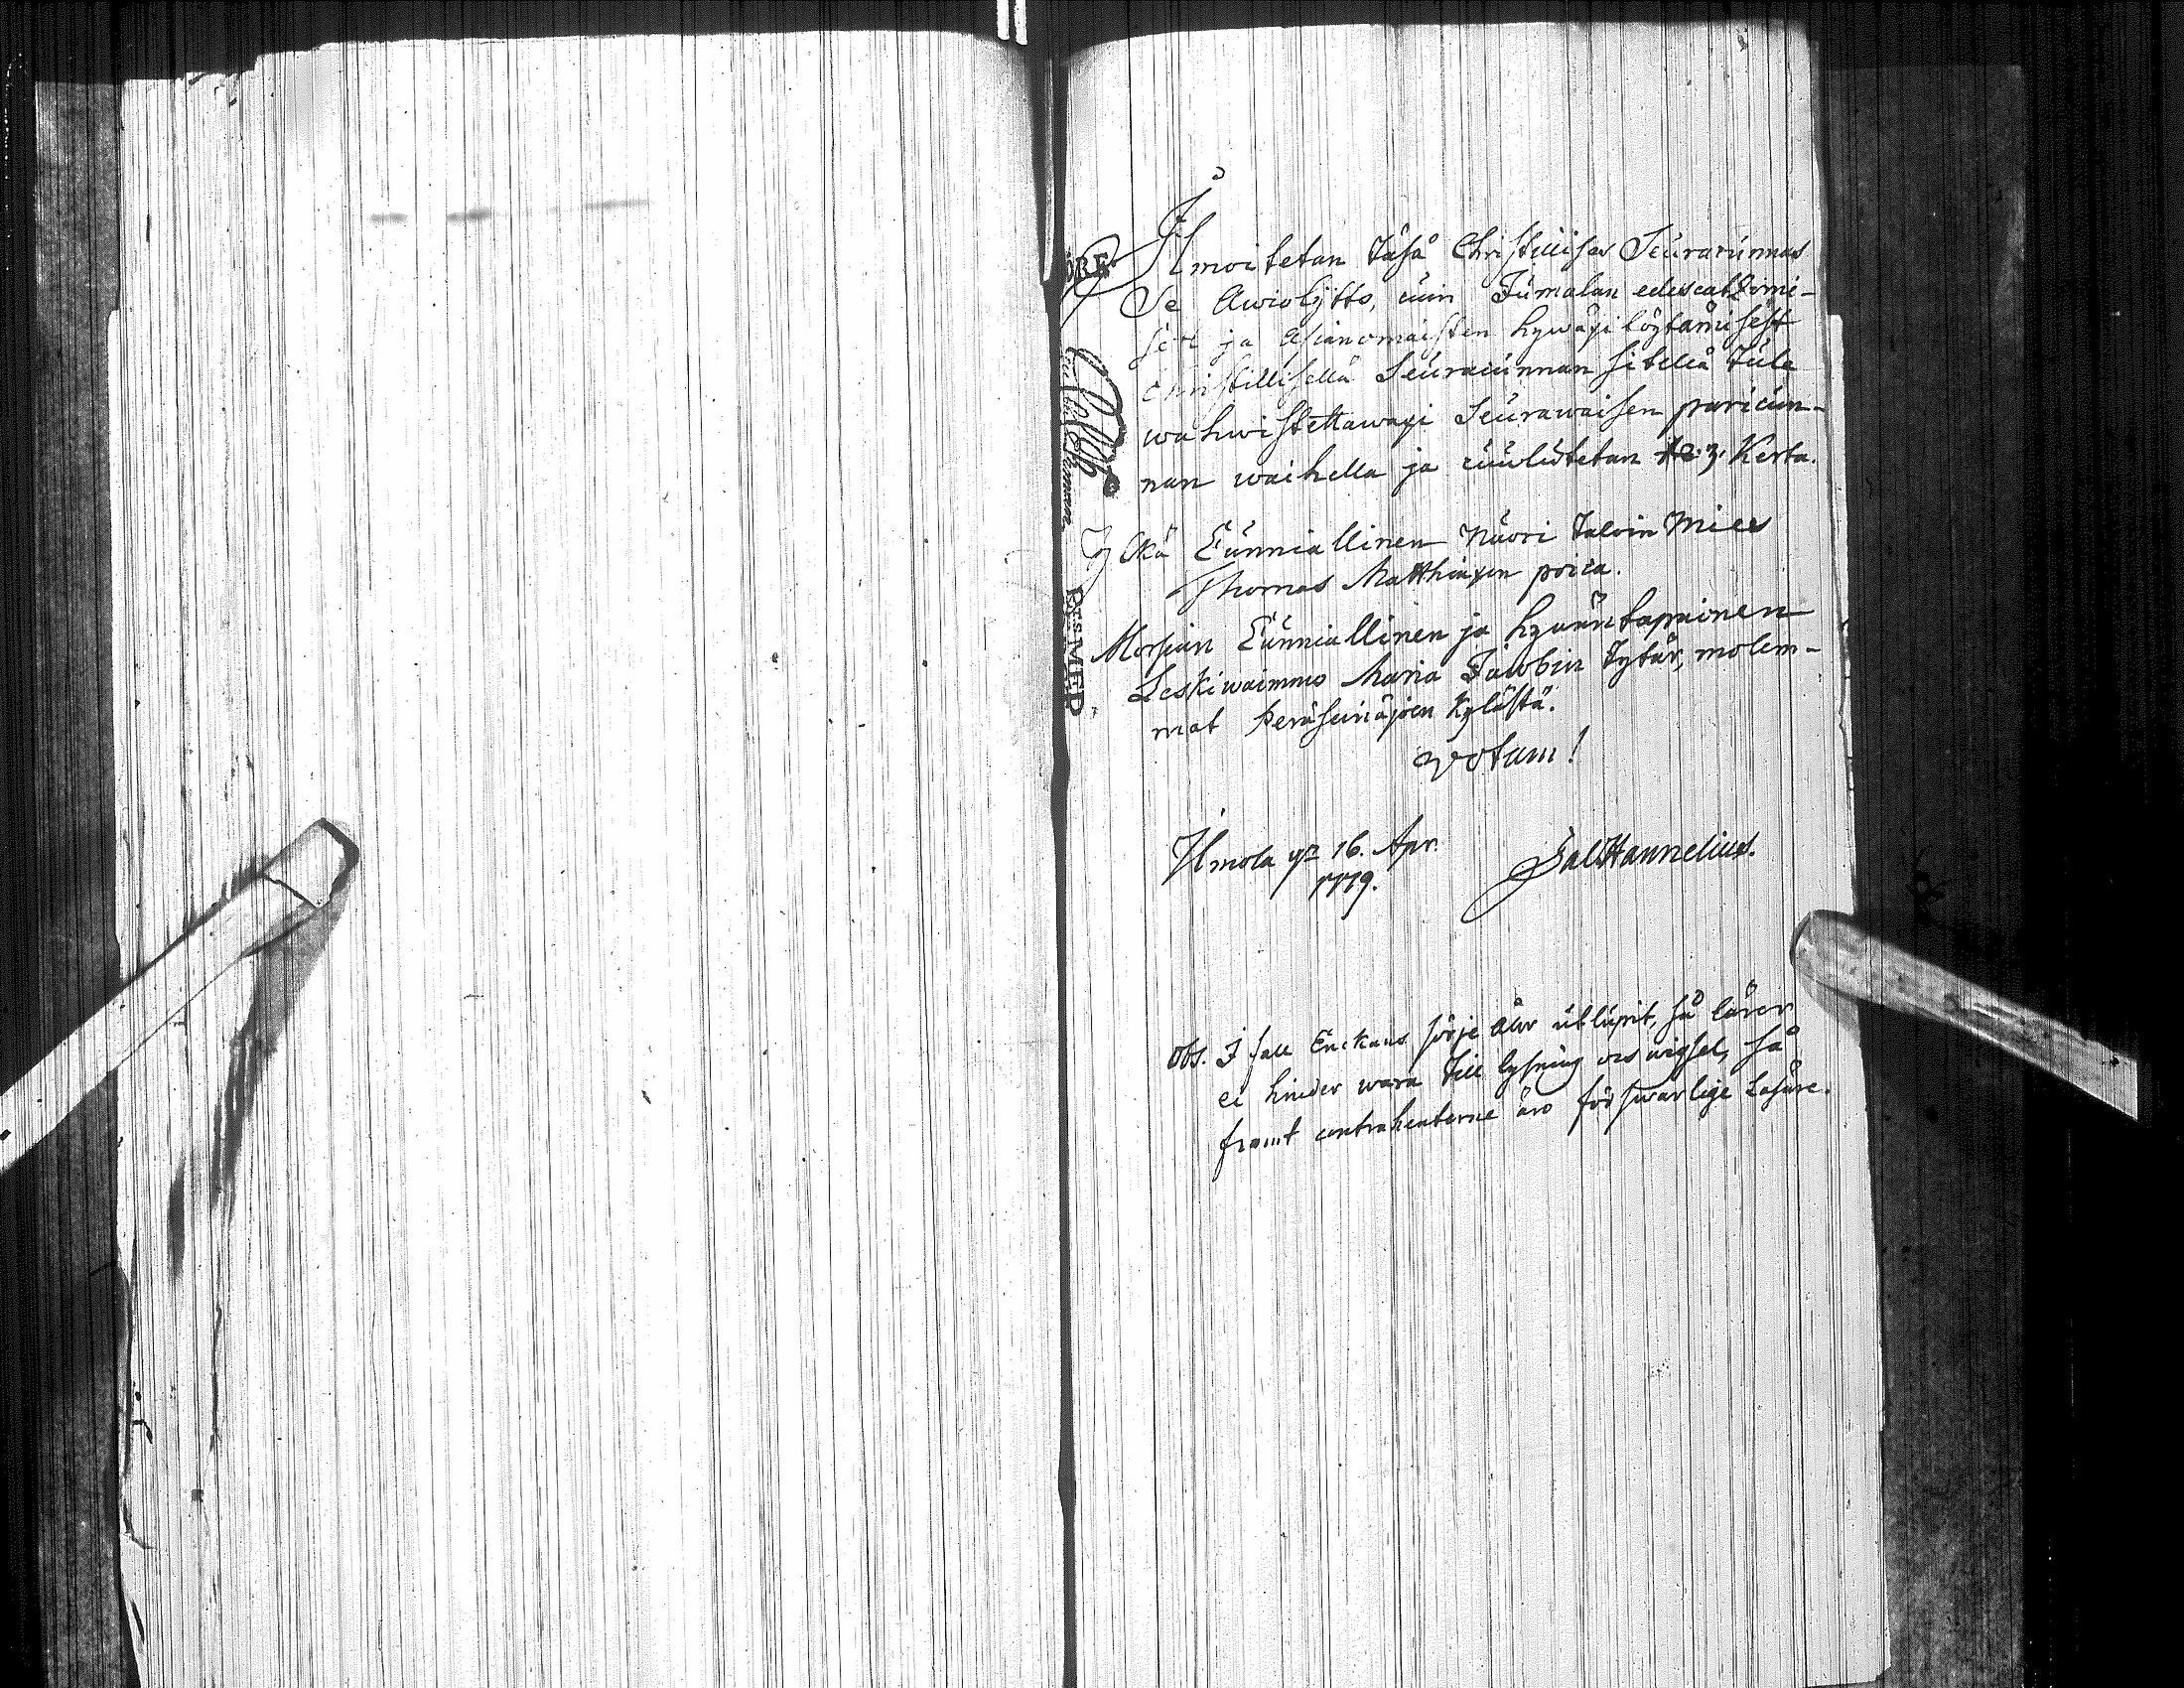 Ilmoitetan täsä Christillises Seuracunnas
Se Awioljitto, cuin Jumalan edescatzomi-
sest ja Asianomaisten hywäxi löytämisest
Christillisellä Seuracunnan sitellä tule
wahwistettawaxi Seurawaisen paricun-
nan waihella ja cuulutetan 3. Kerta.
Ylkä Cunniallinen Nuori taloin Mies
Thomas Matthiaxen poica.
Morsian Cunniallinen ja hywäntapainen
Leskiwaimmo Maria Jacobin tytär, molem-
mat Peräseinäjoen Kylästä.
Votum!
Ilmola 16. Apr.
1779.
Sal Hannelius.
Obs. I fall Enckans sörje åhr utlupit, så lärer
ei hinder wara till lysning och wigsel, så
framt contrahenterne äro förswarlige Läsare.
ÖRE
MED